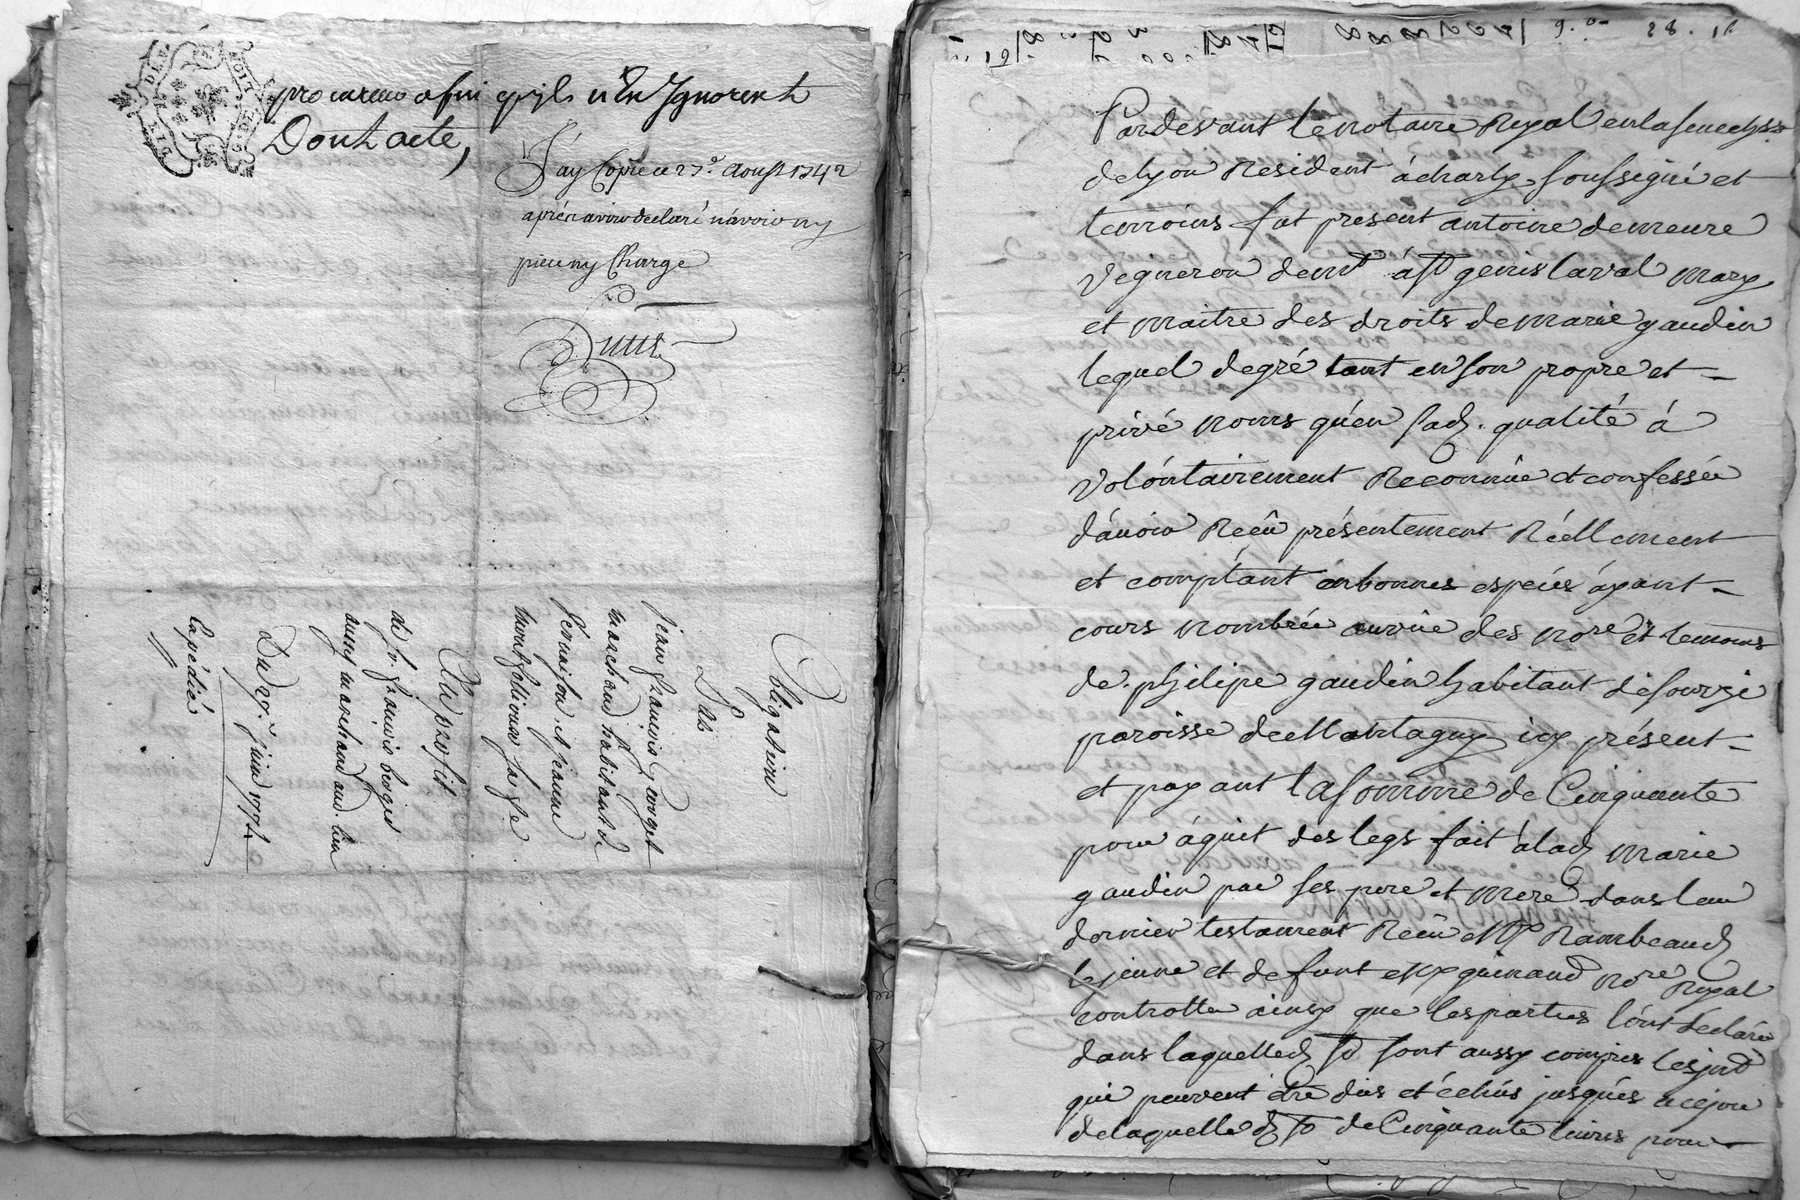 procureur afin qu'ils n'En Ignorent
Dont acte,
J'ay Copie ce 27e. Aoust 1742
déclaré n'avoir ny
pieces ny Charge
Obligation
Par
jean françois goryet
marchand habitant de
vernaison, et jeanne
sa fe
Au profit
de sr. françois berger
aussy marchand aud. lieu
Du 29e. juin 1774
Expédié
Pardevant le notaire Royal en la senechssée
de lyon Résident á charly soussigné et
temoins fut present antoine demeure
vigneron demt. á st genis laval mary
et maitre des droits de marie gaudin
lequel de gré tant en son propre et
privé noms qu'en sad. qualité á
volóntairement Reconnüe et confessée
d'ávoir Reçû présentement Réellement
et comptánt én bonnes espéces áyant
cours nombrée au vüe des nore et temoins
de philipe gaudin habitant de sourzi
paroisse de Montagny icy présent
et payant la somme de Cinquante
pour áquit des legs fait á lad. marie
gaudin par ses pere et mere dans leur
dernier testament Reçu Me Rambeaud
le jeune et defunt guinand nore Royal
controlle ainsy que les parties l'ónt déclaré
dans laquelle d. so sont aussy compris les jnt
qui peuvent étre dus et échús jusqués a ce jour
de laquelle d. so de Cinquante livres pour